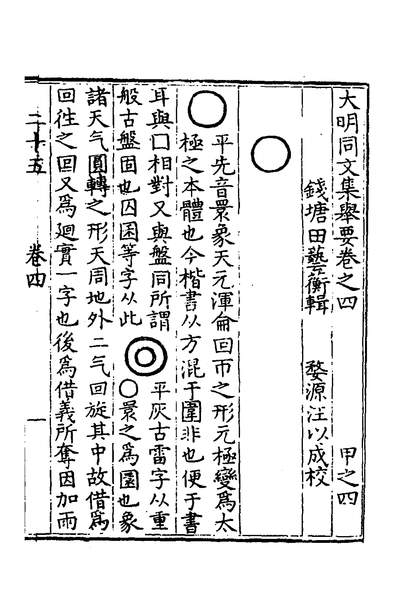 大明同文集舉要卷之四 甲之四
錢塘田藝衡輯 婺源汪以成校
平先音睘象天元渾侖回帀之形元極變為太
極之本體也今楷書以方混于圍非也便于書
耳與口相對又與盤同所謂
般古盤固也囚困等字从此
平灰古雷字从重
○睘之為圜也象
諸天气圓轉之形天周地外二气回旋其中故借為
回往之回又為迴實一字也後為借義所奪因加雨
二十五 卷四 一